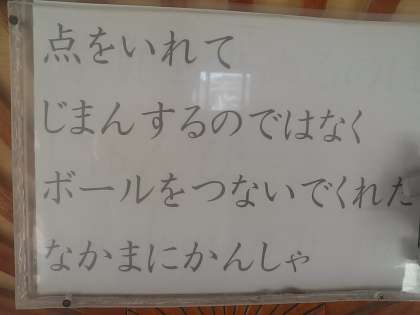 点をいれて
じまんするのではなく
ボールをつないでくれた
なかまにかんしゃ